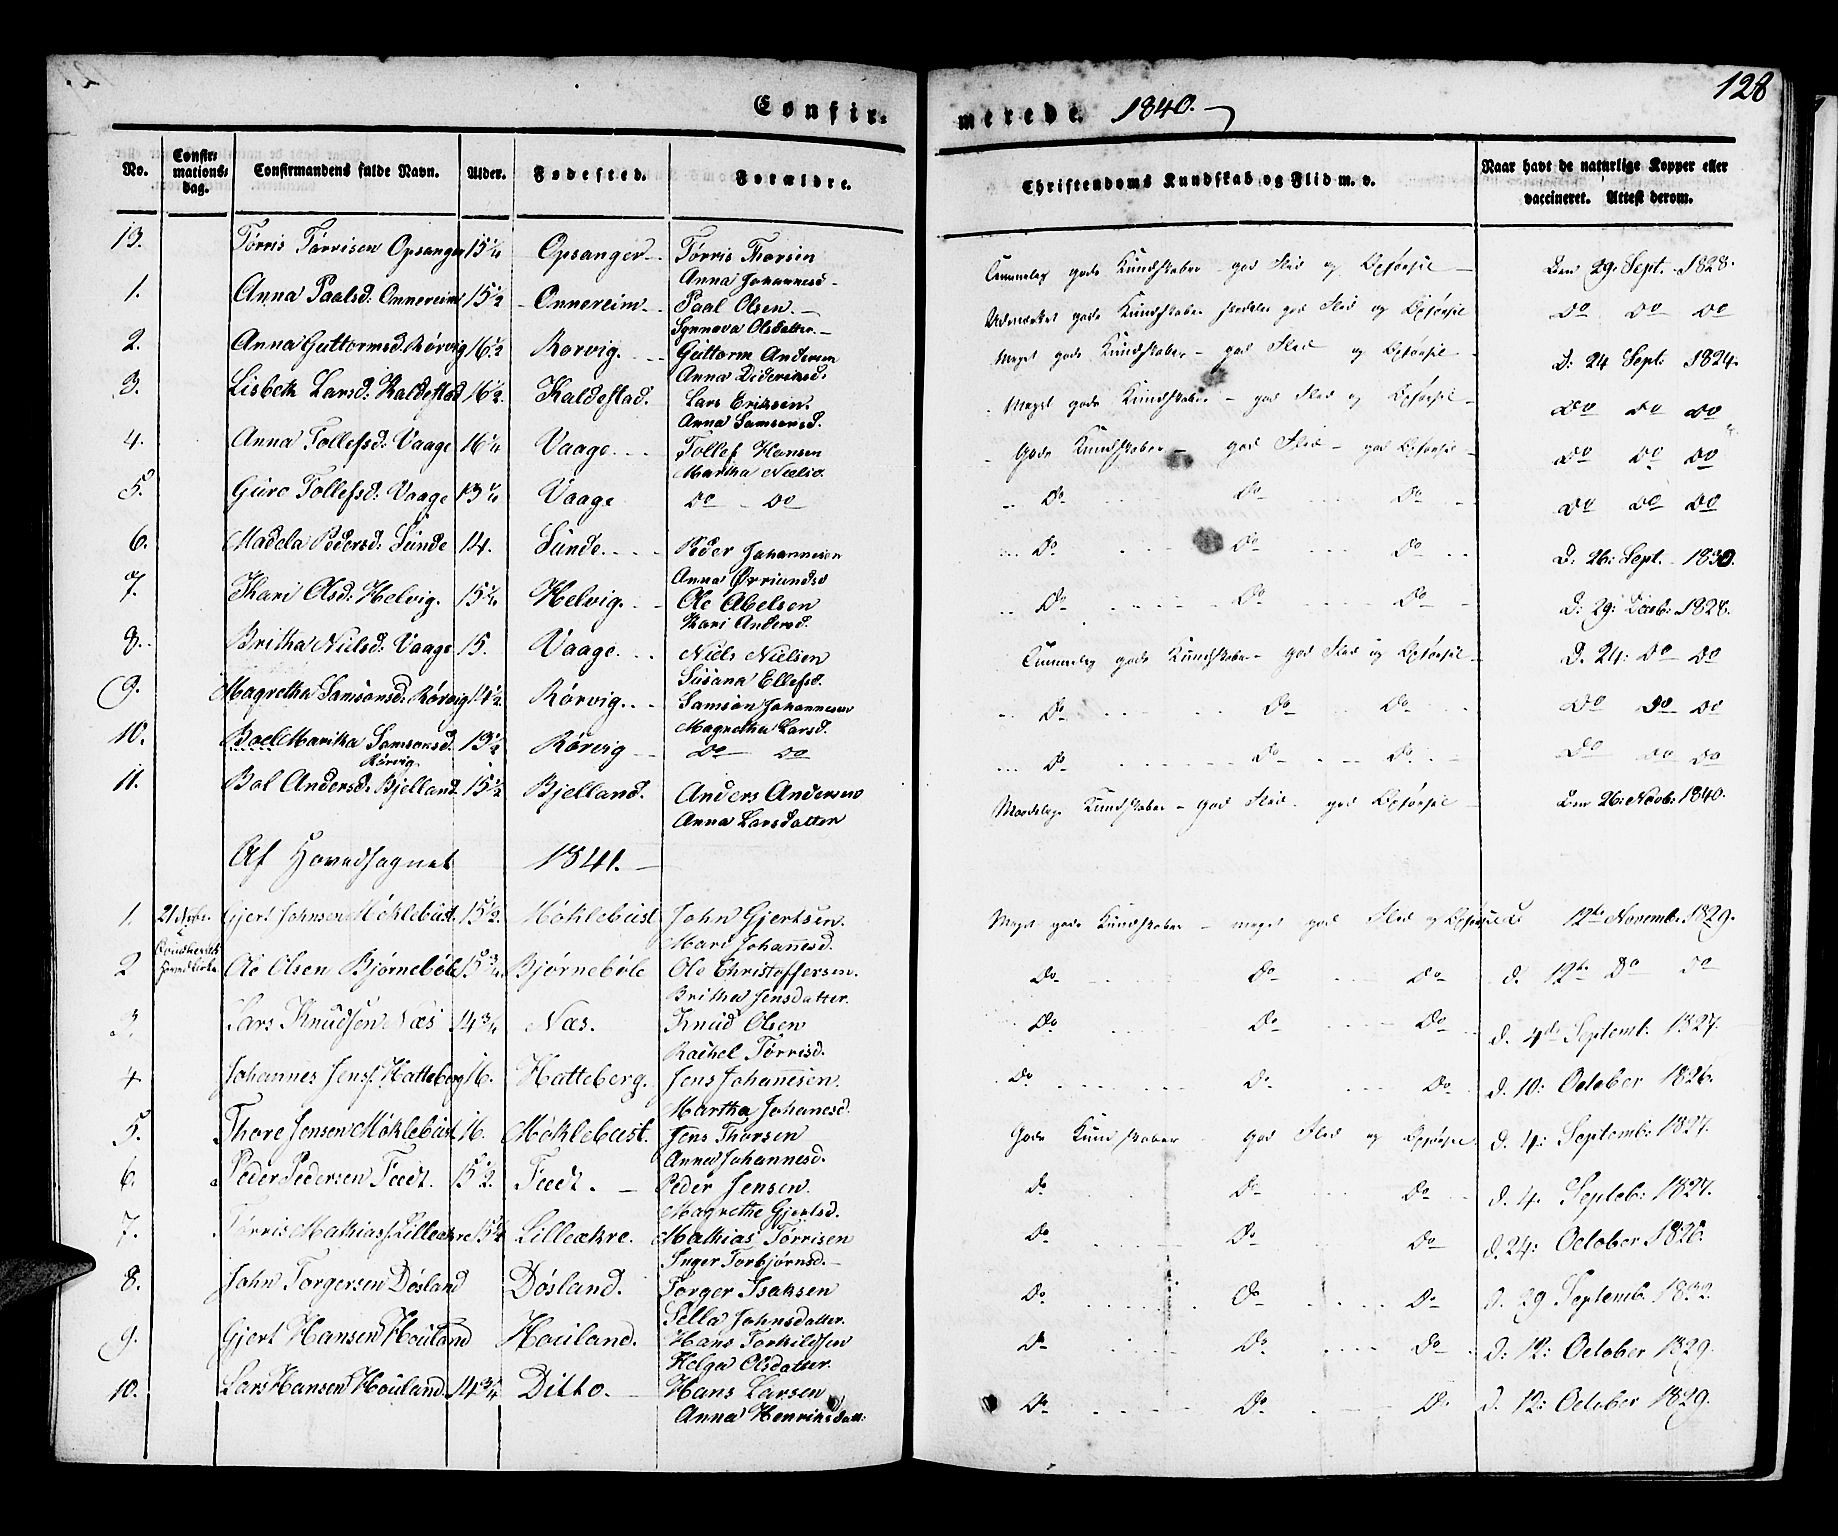 128
Confirmerede. 1840.
No. Confirmationsdag. Confirmandens fulde Navn. Alder. Fødested. Forældre. Christendoms Kundskab og Flid m. v. Naar havt de naturlige Kopper eller vaccineret. Attest derom.
13. Tørris Tørrisen Opsanger 15 1/4 Opsanger Tørris Thorsen Temmelig gode Kundskaber - god Flid og Opførsel Den 29. Sept. 1828.
Anna Johannesd
1. Anna Paalsd: Onnereim 15 1/2 Onnereim Paal Olsen. Udmærket gode Kundskaber god Flid og Opførsel Do Do Do
Synneva Olsdatter.
2. Anna Guttormsd. Rørvig 16 1/2 Rorvig. Guttorm Andersen Meget gode Kundskaber - god Flid og Opførsel D. 24 Sept: 1824.
Anna Dideriksd:
3. Lisbeth Larsd: Kaldestad 16 1/2. Kaldestad. Lars Eriksen. Meget gode Kundskaber - god Flid og Opførsel Do Do Do
Anna Samsonsd.
4. Anna Tollefsd: Vaage 16 1/4 Vaage Tollef Hansen Gode Kundskaber - god Flid - god Opførsel Do Do Do
Martha Nielsd.
5. Guro Tollefsd: Vaage 13 Vaage Do Do Do Do Do Do Do Do
6. Madela Pedersd: Sunde 14. Sunde Peder Johannesen Do Do Do D. 26: Sept. 1830.
Anna
7. Kari Olsd: Helvig. 15 Helvig. Ole Abelsen Do Do Do D: 29: Decb: 1828.
Kari Andersd.
8. Britha Nielsd: Vaage 15. Vaage. Niels Nielsen Temmelig gode Kundskaber - god Flid og Opførsel D. 24: Do Do
Susana Ellefsd.
9. Magretha Samsonsd: Rørvig 14 1/2 Rørvig. Samson Johannesen Do Do Do Do Do Do
Magretha Larsd.
10. Boel Marika Samsonsd. 13 1/2 Rörvig Do Do Do Do Do Do Do Do
Rørvig.
11. Bol Andersd: Bjelland 15 1/2 Bjelland. Anders Andersen Maadelige Kundskaber - god Flid. god Opførsel Den 26: Novb: 1840.
Anna Larsdatter
Af Hovedsognet 1841.
1. 21 Gjert Johnsen Møklebust. 15 1/2. Møklebust John Gjertsen. Meget gode Kundskaber - meget god Flid og Opførsel D 12te Novemb. 1829.
Mari Johannesd.
2 Ole Olsen Bjørnebøle 15 3/4 Bjørnebøle Ole Christoffersen. Do Do Do d. 12te Do Do
Britha Jensdatter.
3. Lars Knudsen Næs 14 3/4 Næs. Knud Olsen Do Do Do d. 4de Septemb: 1827.
Rachel Tørrisd.
4 Johannes Jens. Hatteberg 16. Hatteberg. Jens Johannesen. Do Do Do d. 10: October 1826.
Martha Johanesd.
5. Thore Jensen Møklebust 16. Møklebust. Jens Thorsen Gode Kundskaber - god Flid og Opførsel. d. 4: Septemb: 1827.
Anna Johannesd.
6. Peder Pedersen Tædt. 15 1/2. Tædt. Peder Jensen. Do Do Do d. 4. Septeb: 1827.
Magrethe Gjertsd.
7. Tørris Mathias. Lilleækre 15 1/2 Lilleækre. Mathias Tørrisen Do Do Do d. 24: October 1826.
Inger Torbjørnsd.
8. John Torgersen Døsland Døsland. Torger Isaksen Do Do Do d. 29 Septemb. 1832.
Sella Johnsdatter.
9. Gjert Hansen Houland Houland. Hans Torkildsen Do Do Do d: 12: October 1829.
Helga Olsdatter.
10. Lars Hansen Houland 14 3/4 Ditto. Hans Larsen Do Do D. d. 12: October 1829.
Anna Henriksdatt: